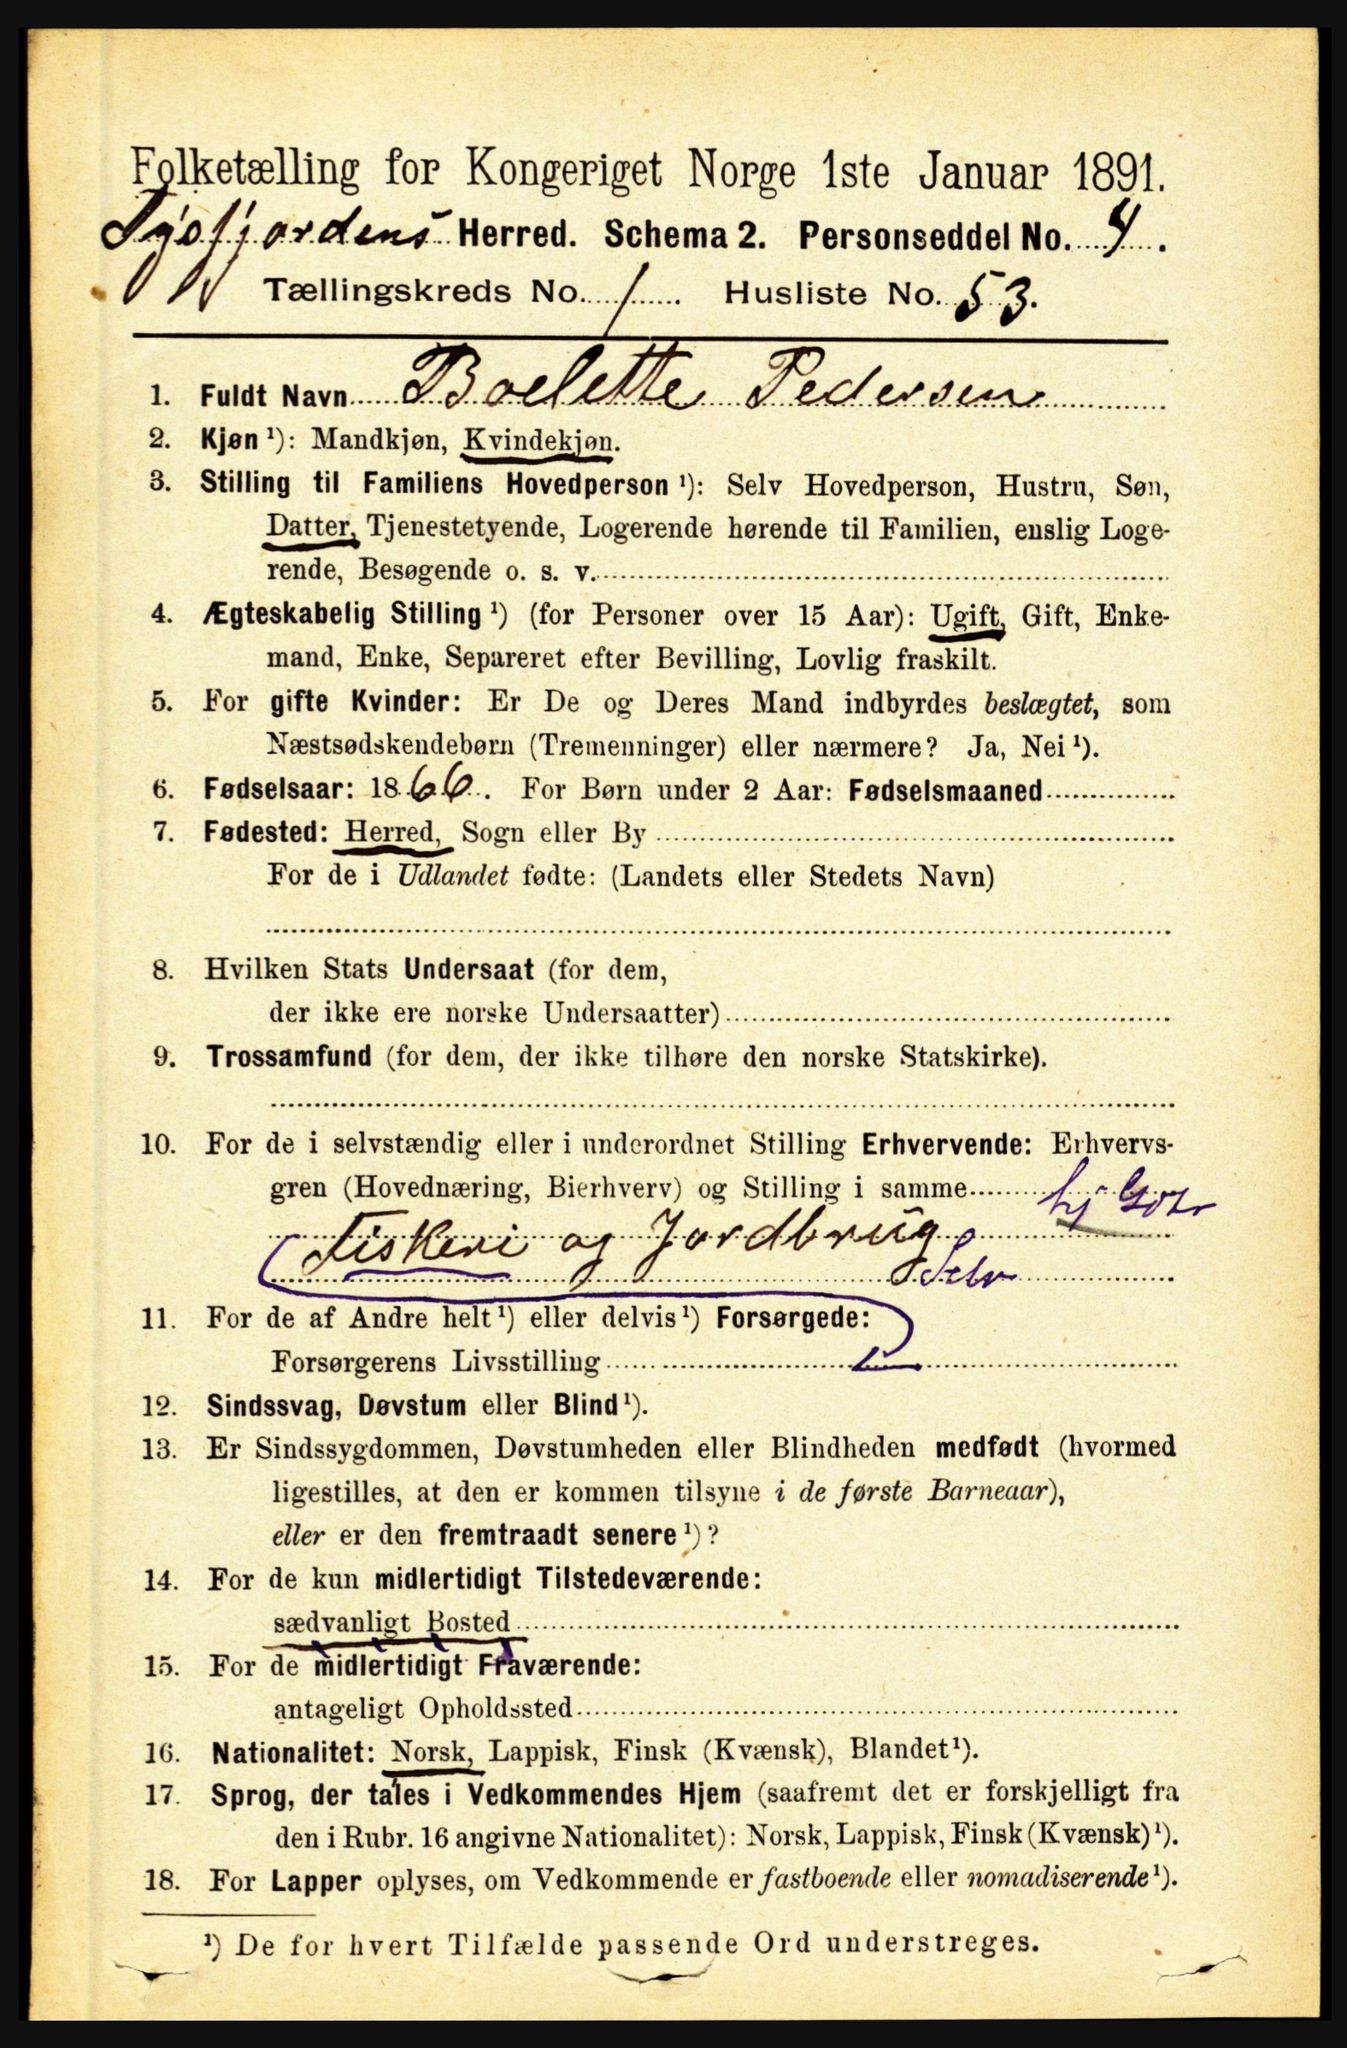 Folketælling for Kongeriget Norge 1ste Januar 1891.
Tysfjordens Herred. Schema 2. Personseddel No. 4.
Tællingskreds No. 1. Husliste No. 53.
1. Fuldt Navn Boelette Pedersen
2. Kjøn ¹): Mandkjøn, Kvindekjøn.
3. Stilling til Familiens Hovedperson ¹): Selv Hovedperson, Hustru, Søn,
Datter, Tjenestetyende, Logerende hørende til Familien, enslig Loge-
rende, Besøgende o. s. v.
4. Ægteskabelig Stilling ¹) (for Personer over 15 Aar): Ugift, Gift, Enke-
mand, Enke, Separeret efter Bevilling, Lovlig fraskilt.
5. For gifte Kvinder: Er De og Deres Mand indbyrdes beslægtet, som
Næstsødskendebørn (Tremenninger) eller nærmere? Ja, Nei ¹).
6. Fødselsaar: 1866. For Børn under 2 Aar: Fødselsmaaned
7. Fødested: Herred, Sogn eller By
For de i Udlandet fødte: (Landets eller Stedets Navn)
8. Hvilken Stats Undersaat (for dem,
der ikke ere norske Undersaatter)
9. Trossamfund (for dem, der ikke tilhøre den norske Statskirke).
10. For de i selvstændig eller i underordnet Stilling Erhvervende: Erhvervs-
gren (Hovednæring, Bierhverv) og Stilling i samme
Fiskeri og Jordbrug
Selv
11. For de af Andre helt ¹) eller delvis ¹) Forsørgede:
Forsørgerens Livsstilling
12. Sindssvag, Døvstum eller Blind ¹).
13. Er Sindssygdommen, Døvstumheden eller Blindheden medfødt (hvormed
ligestilles, at den er kommen tilsyne i de første Barneaar),
eller er den fremtraadt senere ¹)?
14. For de kun midlertidigt Tilstedeværende:
sædvanligt Bosted
15. For de midlertidigt Fraværende:
antageligt Opholdssted
16. Nationalitet: Norsk, Lappisk, Finsk (Kvænsk), Blandet ¹).
17. Sprog, der tales i Vedkommendes Hjem (saafremt det er forskjelligt fra
den i Rubr. 16 angivne Nationalitet): Norsk, Lappisk, Finsk (Kvænsk) ¹).
18. For Lapper oplyses, om Vedkommende er fastboende eller nomadiserende ¹).
¹) De for hvert Tilfælde passende Ord understreges.